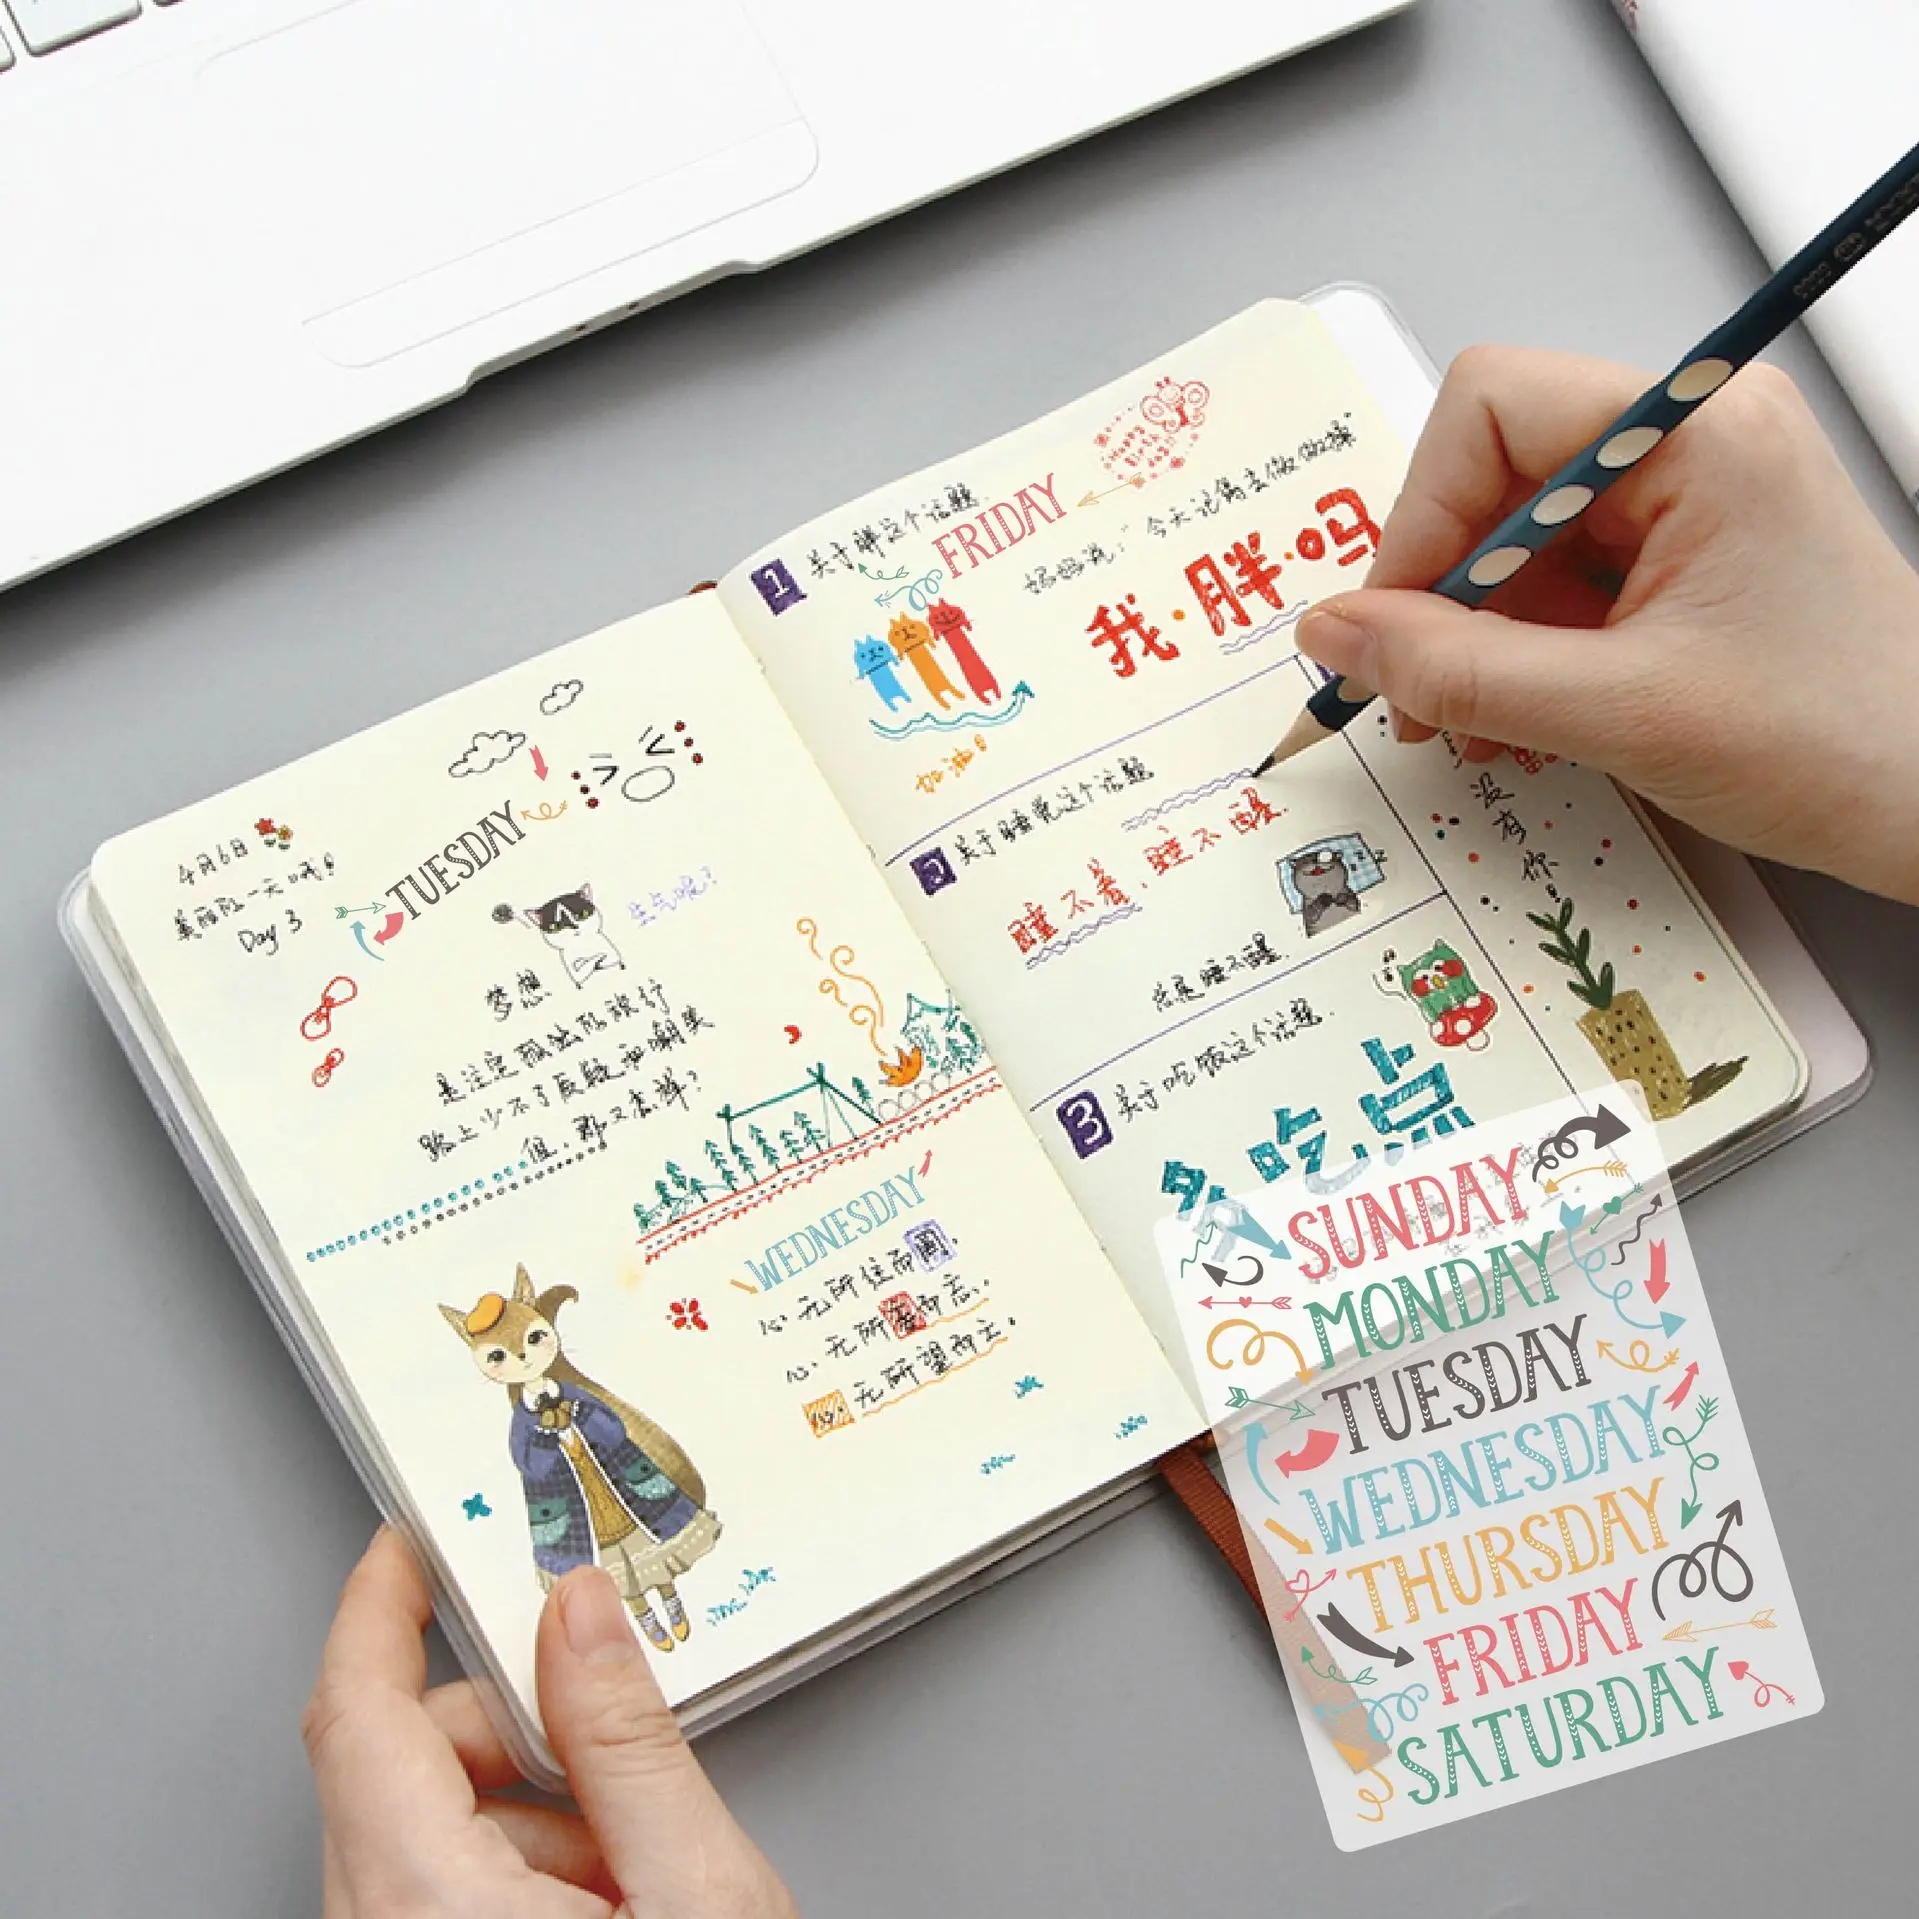 4月6日
美丽的一天哦!
Day 3
TUESDAY
生气呢?
梦想
是注定孤独的旅行
路上少不了质疑和嘲笑
但,那又怎样?
WEDNESDAY
心无所住而
心无所
心无所望而
1 关于胖这个话题
FRIDAY
Happy
Birth
day
妈妈说:"今天记得去做做操"
我·胖·吗
加油!
2 关于睡觉这个话题
睡不着,睡不醒.
总是睡不醒.
3 关于吃饭这个话题.
多吃点
没有你!
SUNDAY
MONDAY
TUESDAY
WEDNESDAY
THURSDAY
FRIDAY
SATURDAY